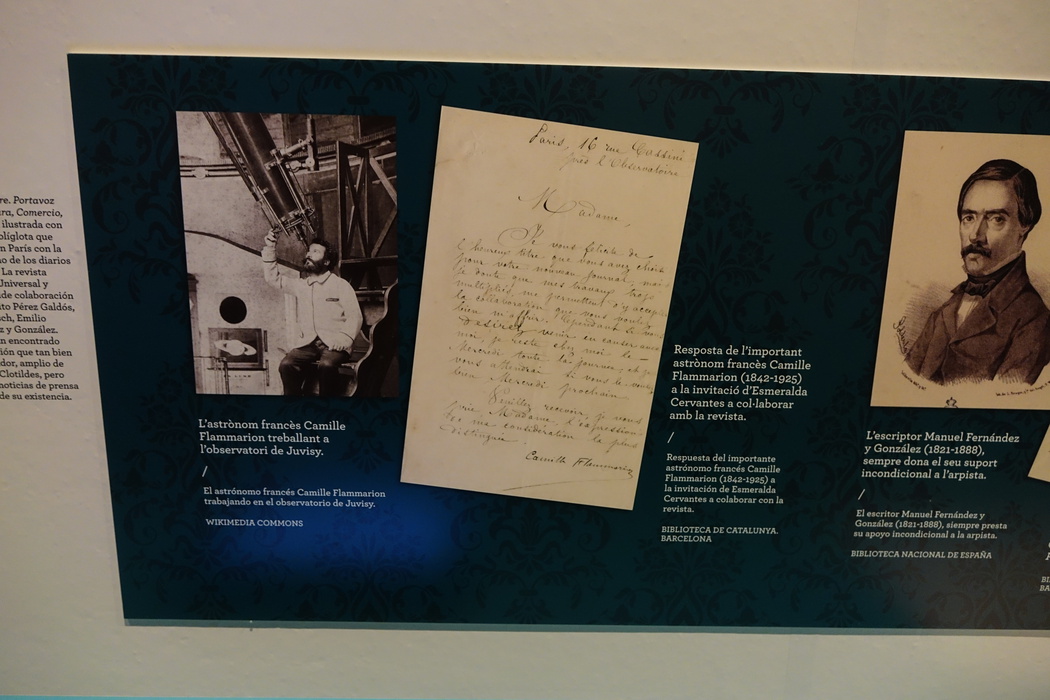 re. Portavoz
ura, Comercio,
ilustrada con
políglota que
n París con la
o de los diarios
La revista
Universal y
de colaboración
ito Pérez Galdós,
sch, Emilio
z y González.
n encontrado
ión que tan bien
dor, amplio de
Clotildes, pero
noticias de prensa
de su existencia.
L'astrònom francès Camille
Flammarion treballant a
l'observatori de Juvisy.
/
El astrónomo francés Camille Flammarion
trabajando en el observatorio de Juvisy.
WIKIMEDIA COMMONS
Paris, 16 rue Cassini
près l'Observatoire
Madame,
Je vous félicite de
l'heureux titre que vous avez choisi
pour votre nouveau journal, mais
je doute que mes travaux trop
multipliés me permettent d'y accepter
la collaboration que vous voulez
bien m'offrir. Cependant si vous
désirez venir en causer avec
moi, je reste chez moi le
Mercredi toute la journée, et je
vous attendrai si vous le voulez
bien Mercredi prochain.
Veuillez recevoir, je vous
prie Madame, l'expression
de ma considération la plus
distinguée
Camille Flammarion
Resposta de l'important
astrònom francès Camille
Flammarion (1842-1925)
a la invitació d'Esmeralda
Cervantes a col·laborar
amb la revista.
/
Respuesta del importante
astrónomo francés Camille
Flammarion (1842-1925) a
la invitación de Esmeralda
Cervantes a colaborar con la
revista.
BIBLIOTECA DE CATALUNYA.
BARCELONA
L'escriptor Manuel Fernández
y González (1821-1888),
sempre dona el seu suport
incondicional a l'arpista.
/
El escritor Manuel Fernández y
González (1821-1888), siempre presta
su apoyo incondicional a la arpista.
BIBLIOTECA NACIONAL DE ESPAÑA